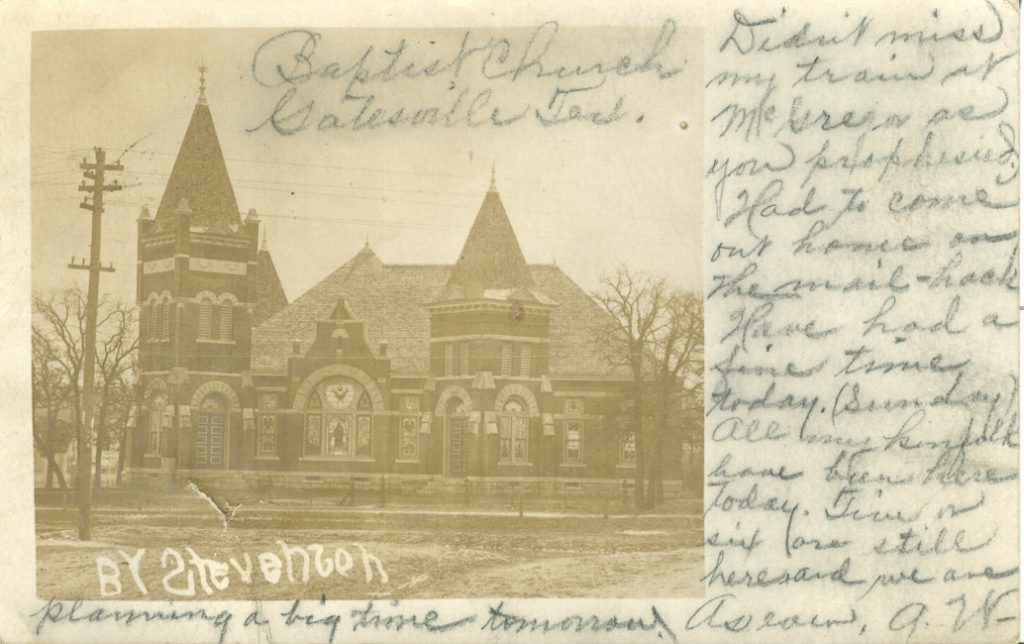 Baptist Church
Gatesville Tex.
Didn't miss
my train at
McGregor as
you prophesied.
Had to come
out home on
the mail-hack
Have had a
fine time
today. (Sunday)
All my kinfolk
have been here
today. Five or
six are still
here and we are
planning a big time tomorrow. As ever, A. W-
BY Stevenson